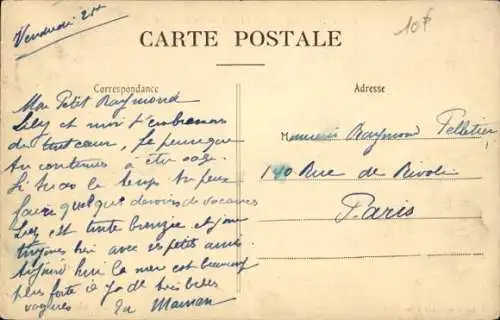 Vendredi 21
10F
CARTE POSTALE
Correspondance
Adresse
Mon Petit Raymond
Lily et moi t'embrassons
de tout cœur, je pense que
tu continues à être sage.
Si tu as le temps tu peux
faire quelque devoirs de vacances
Lily est toute bronzée et joue
toujours bien avec ses petits amis.
Aujourd'hui la mer est beaucoup
plus forte il y a de très belles
vagues. Ta Maman
Monsieur Raymond Pelletier
140 Rue de Rivoli
Paris